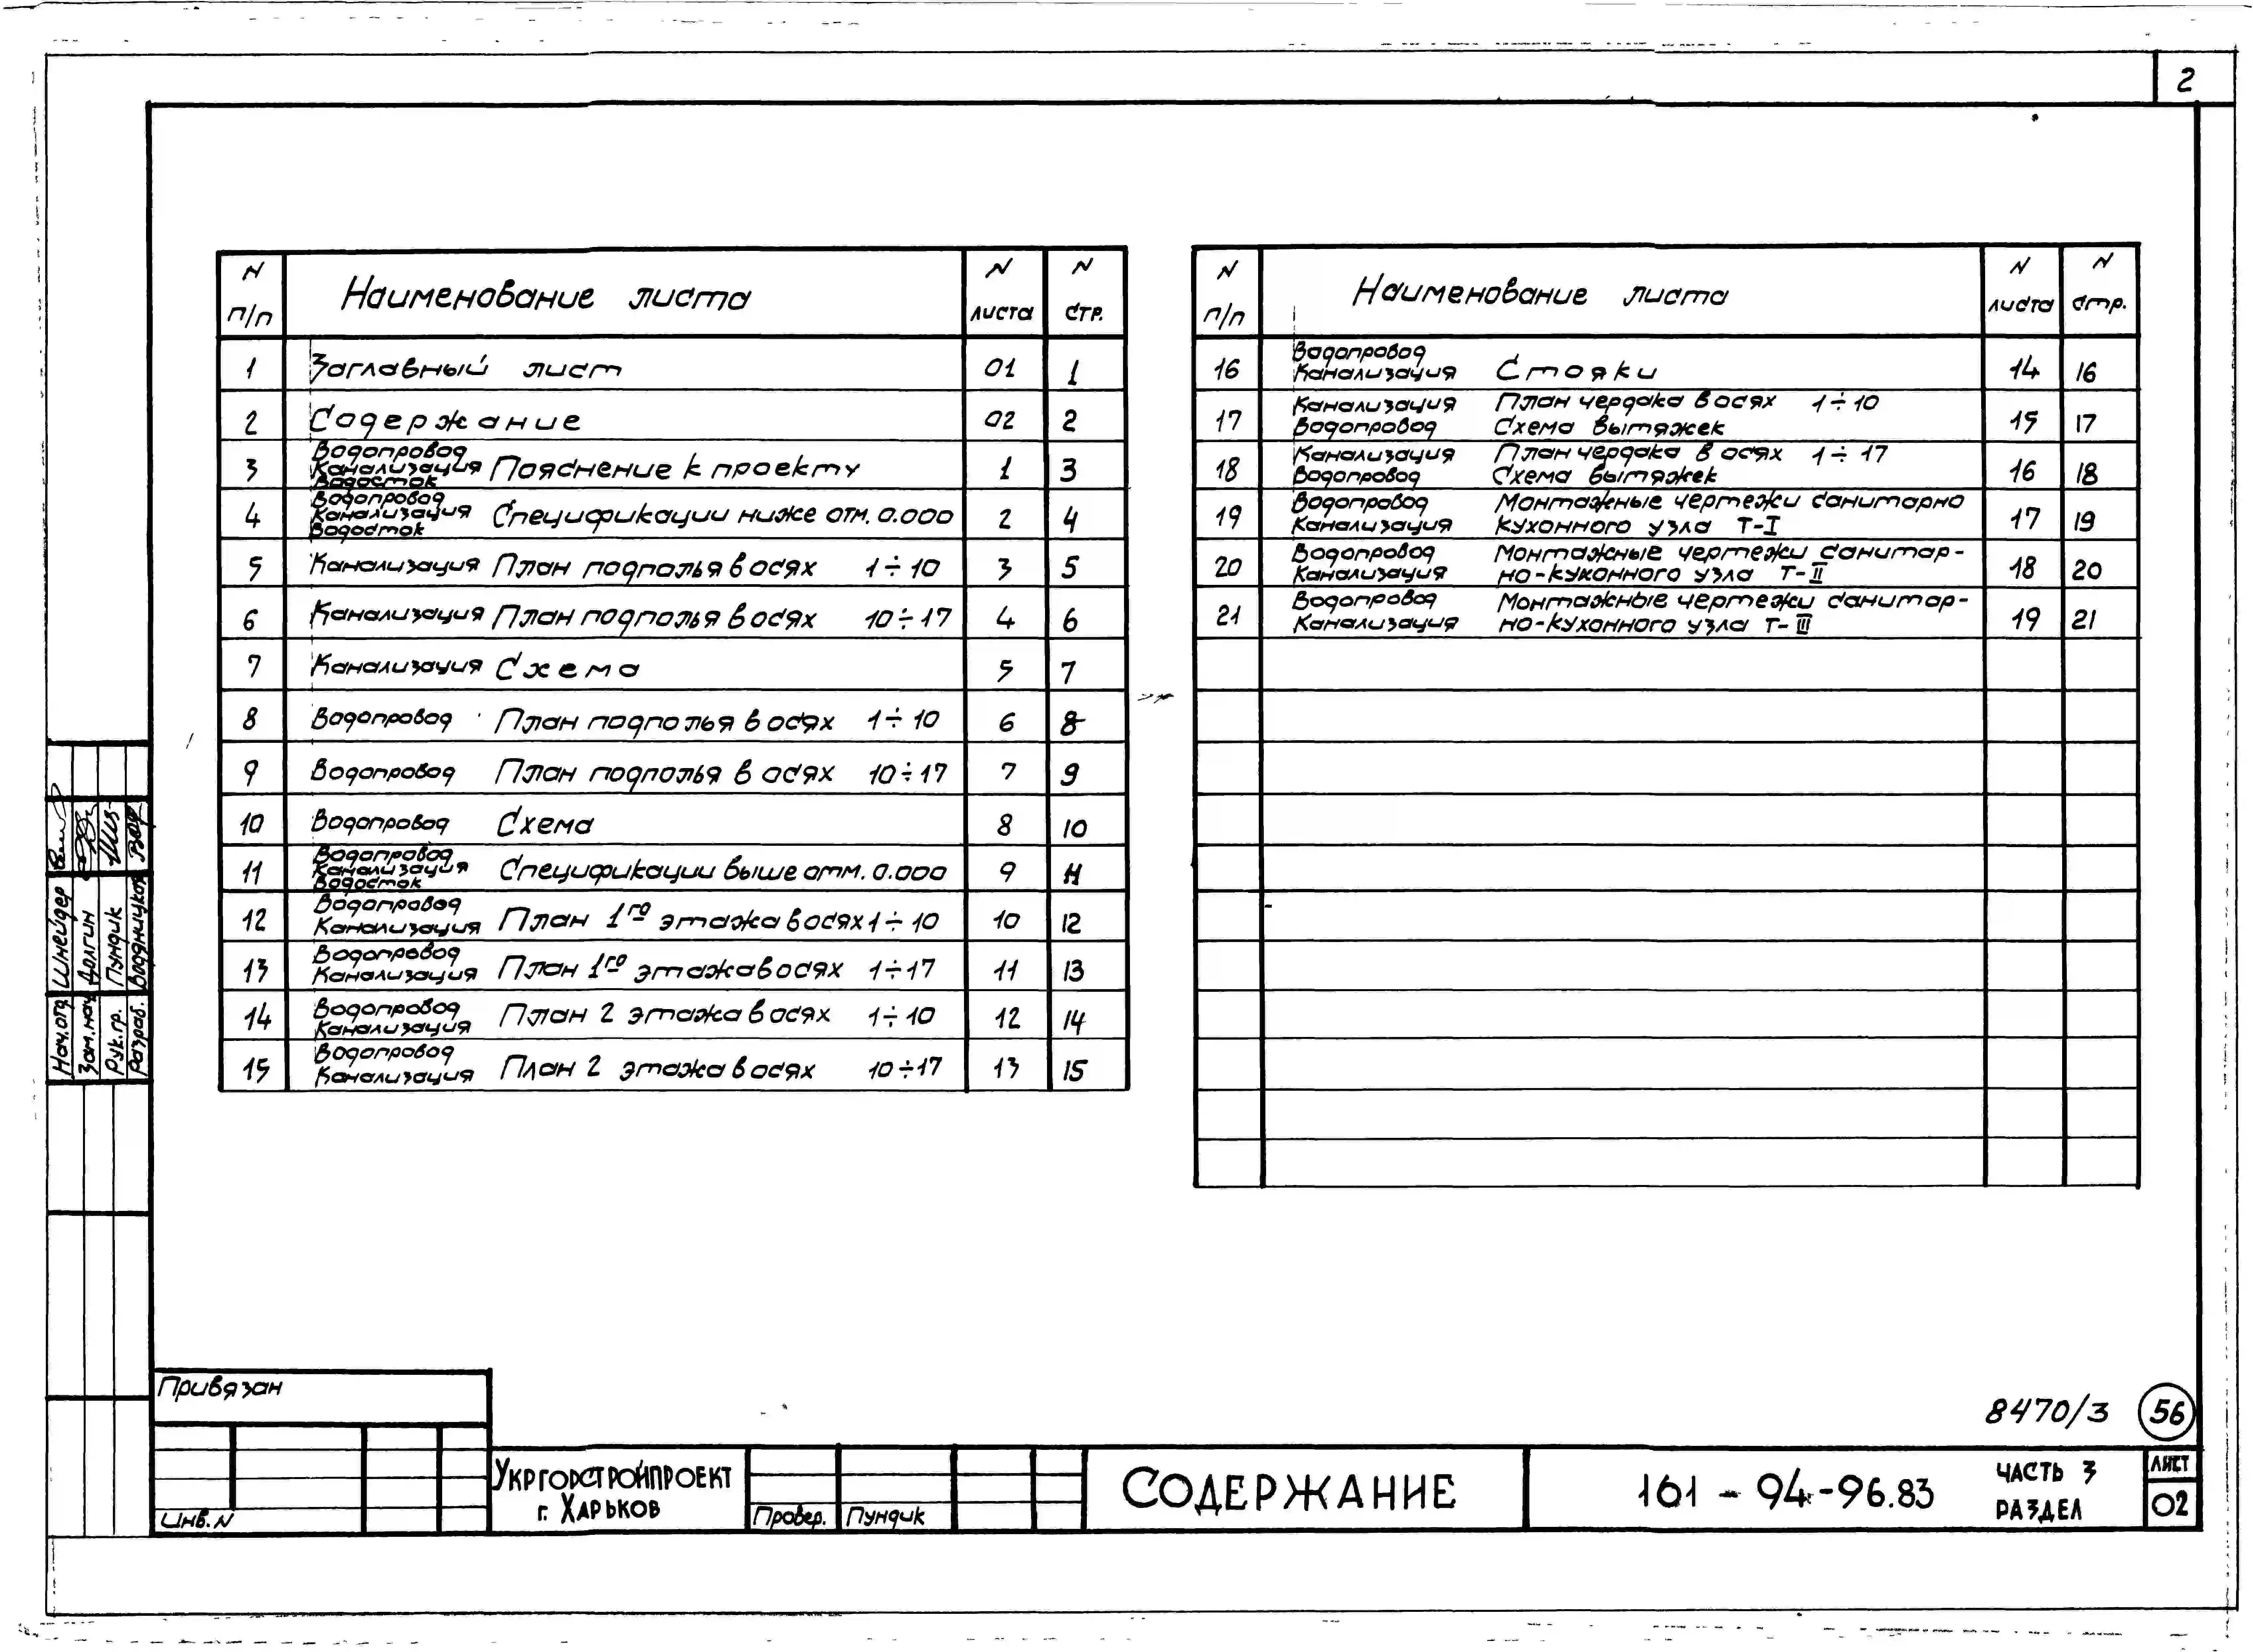 2
N п/п Наименование листа N листа N стр.
1 Заглавный лист 01 1
2 Содержание 02 2
3 Водопровод Канализация Водосток Пояснение к проекту 1 3
4 Водопровод Канализация Водосток Спецификации ниже отм. 0.000 2 4
5 Канализация План подполья в осях 1÷10 3 5
6 Канализация План подполья в осях 10÷17 4 6
7 Канализация Схема 5 7
8 Водопровод План подполья в осях 1÷10 6 8
9 Водопровод План подполья в осях 10÷17 7 9
10 Водопровод Схема 8 10
11 Водопровод Канализация Водосток Спецификации выше отм. 0.000 9 11
12 Водопровод Канализация План 1го этажа в осях 1÷10 10 12
13 Водопровод Канализация План 1го этажа в осях 1÷17 11 13
14 Водопровод Канализация План 2 этажа в осях 1÷10 12 14
15 Водопровод Канализация План 2 этажа в осях 10÷17 13 15
N п/п Наименование листа N листа N стр.
16 Водопровод Канализация Стояки 14 16
17 Канализация Водопровод План чердака в осях 1÷10 Схема вытяжек 15 17
18 Канализация Водопровод План чердака в осях 1÷17 Схема вытяжек 16 18
19 Водопровод Канализация Монтажные чертежи санитарно кухонного узла Т-I 17 19
20 Водопровод Канализация Монтажные чертежи санитар-но-кухонного узла Т-II 18 20
21 Водопровод Канализация Монтажные чертежи санитар-но-кухонного узла Т-III 19 21
Нач.отд Шнейдер
Зам.нач Долгин
Рук.гр. Пундик
Разраб. Водяницкая
Привязан
Инв. N
8470/3 56
Укргорстройпроект
г. Харьков
Провер. Пундик
Содержание
161-94-96.83
часть 3
раздел
лист
02